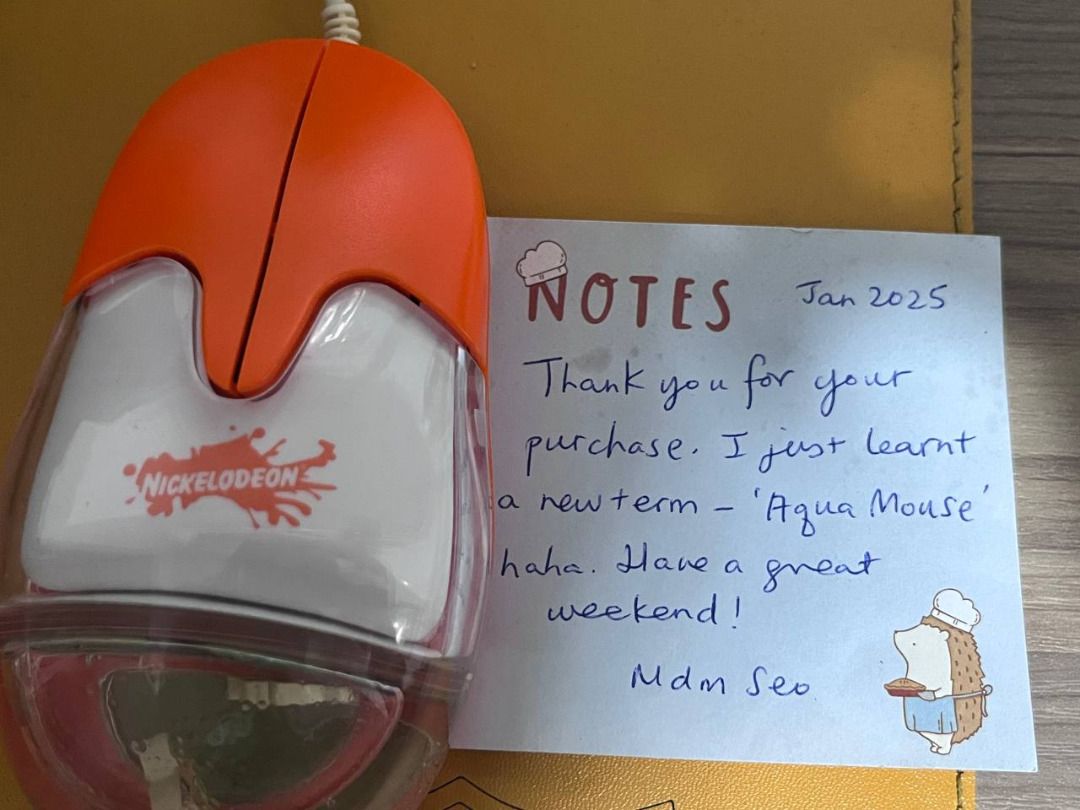 NICKELODEON
NOTES Jan 2025
Thank you for your
purchase. I just learnt
a new term - 'Aqua Mouse'
haha. Have a great
weekend!
Mdm Seo